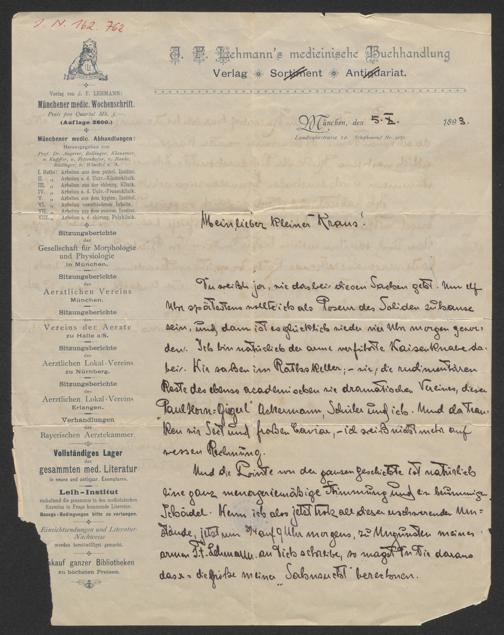 J. N. 162.762
J. F. Lehmann's medicinische Buchhandlung
Verlag Sortiment Antiquariat.
München, den 5. X. 1893
Landwehrstrasse
Verlag von J. F. LEHMANN:
Münchener medic. Wochenschrift.
Preis pro Quartal Mk.
(Auflage 2600.)
Münchener medic. Abhandlungen:
Herausgegeben von
I. Reihe: Arbeiten aus dem pathol. Institut.
II. Arbeiten a. d. Univ.-Kinderklinik.
III. Arbeiten aus der chirurg. Klinik.
IV. Arbeiten a. d. Univ.-Frauenklinik.
V. Arbeiten aus dem hygien. Institut.
VI. Arbeiten verschiedenen Inhalts.
VII. Arbeiten aus dem Institut.
VIII. Arbeiten a. d. chirurg. Polyklinik.
Sitzungsberichte
der
Gesellschaft für Morphologie
und Physiologie
in München.
Sitzungsberichte
des
Aerztlichen Vereins
München.
Sitzungsberichte
des
Vereins der Aerzte
zu Halle a/S.
Sitzungsberichte
des
Aerztlichen Lokal-Vereins
zu Nürnberg.
Sitzungsberichte
des
Aerztlichen Lokal-Vereins
Erlangen.
Verhandlungen
der
Bayerischen Aerztekammer.
Vollständiges Lager
der
gesammten med. Literatur
in neuen und antiquar. Exemplaren.
Leih-Institut
enthaltend die gesammte in den medicinischen
Examina in Frage kommende Literatur.
Bezugs-Bedingungen bitte zu verlangen.
Einzichtsendungen und Literatur-
Nachweise
werden bereitwilligst gemacht.
kauf ganzer Bibliotheken
zu höchsten Preisen.
Mein lieber kleiner Kraus!
Du weißt ja, wie das bei diesen Sachen geht. Um elf
Uhr spätestens wollte ich als Posem des Soliden zuhause
sein, und dann ist es glücklich wieder vier Uhr morgen gewor-
den. Ich bin natürlich der arme verführte Kaisenknabe da-
bei. Wir saßen im Rathskeller, – wir, die rudimentären
Reste des ebenso academischen wie dramatischen Vereines, diesen
Ackermann, Schüler und ich. Und da tran-
ken wir Sect und fraßen Caviar, – ich weiß nicht mehr auf
wessen Rechnung.
Und die Pointe von der ganzen Geschichte ist natürlich
eine ganz menageriemäßige Stimmung und ein brummiger
Schädel. Wenn ich also jetzt trotz all dieser erschwerenden Um-
stände, jetzt um Uhr morgens, zu Ungunsten meines
armen J. F. Lehmann an Dich schreibe, so magst Du Dir daraus
das x = die Größe meiner „Sehnsucht" berechnen.